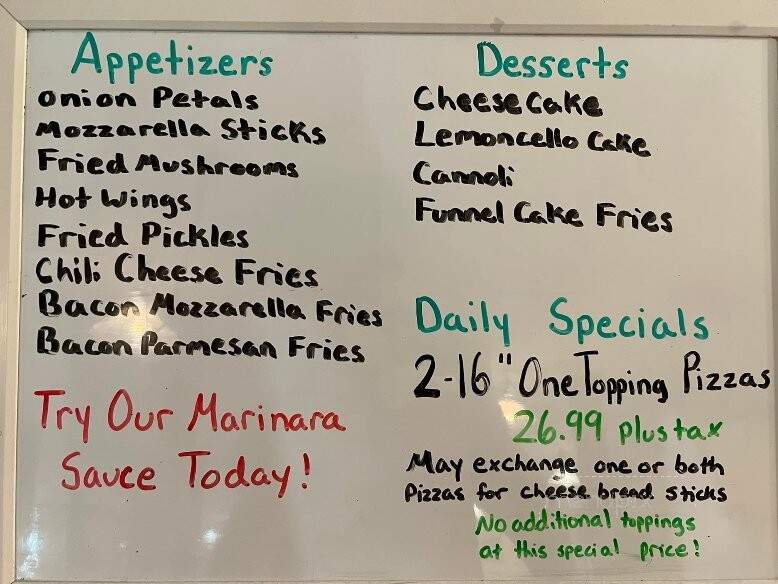 Appetizers
onion Petals
Mozzarella Sticks
Fried Mushrooms
Hot Wings
Fried Pickles
Chili Cheese Fries
Bacon Mozzarella Fries
Bacon Parmesan Fries
Try Our Marinara
Sauce Today!
Desserts
Cheesecake
Lemoncello Cake
Cannoli
Funnel Cake Fries
Daily Specials
2-16" One Topping Pizzas
26.99 plus tax
May exchange one or both
Pizzas for cheese bread sticks
No additional toppings
at this special price!